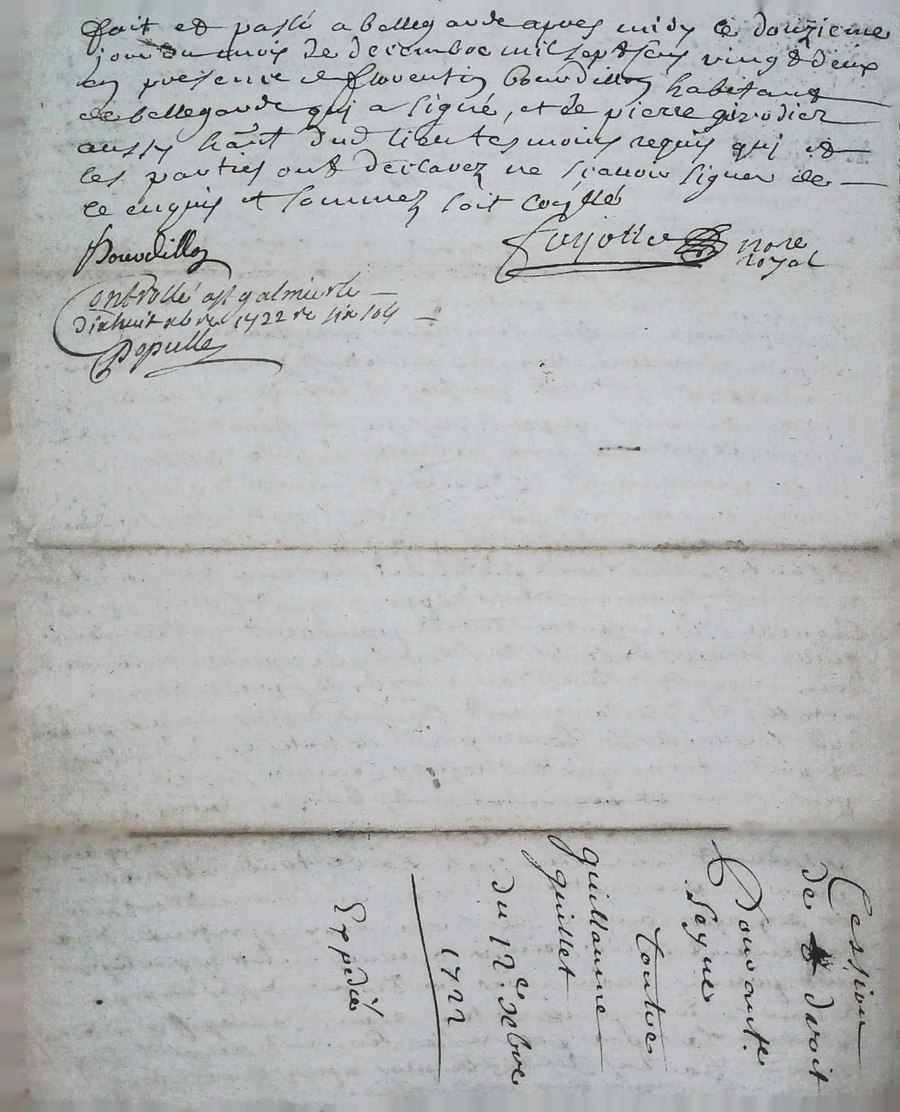 fait et passé a bellegarde apres midy le douzieme
jour du mois de decembre mil sept cens vingt deux
en presence de florentin bourdillon habitant
de bellegarde qui a signé, et de pierre girodier
aussy hant dud lieu tesmoins requis qui et
les parties ont declarez ne scavoir signer de
ce enquis et sommez soit
Bourdillon
nore
royal
Controllé a st galmier le
dixhuit xbre 1722 re six
Populle
Cession
de droit
Pour
contre
guillaume
guillet
du 12e xbre
1722
Expedié